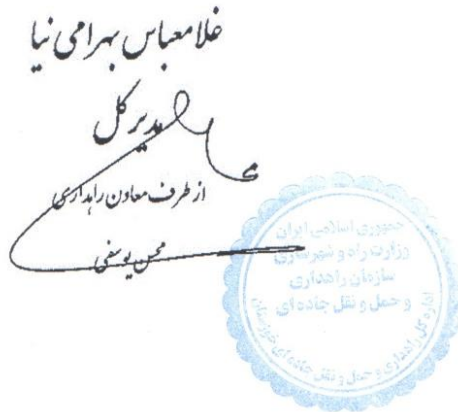 غلامعباس بهرامی نیا
مدیر کل
از طرف معاون راهداری
محسن یوسفی
جمهوری اسلامی ایران
وزارت راه و شهرسازی
سازمان راهداری
و حمل و نقل جاده ای
اداره کل راهداری و حمل و نقل جاده ای خوزستان